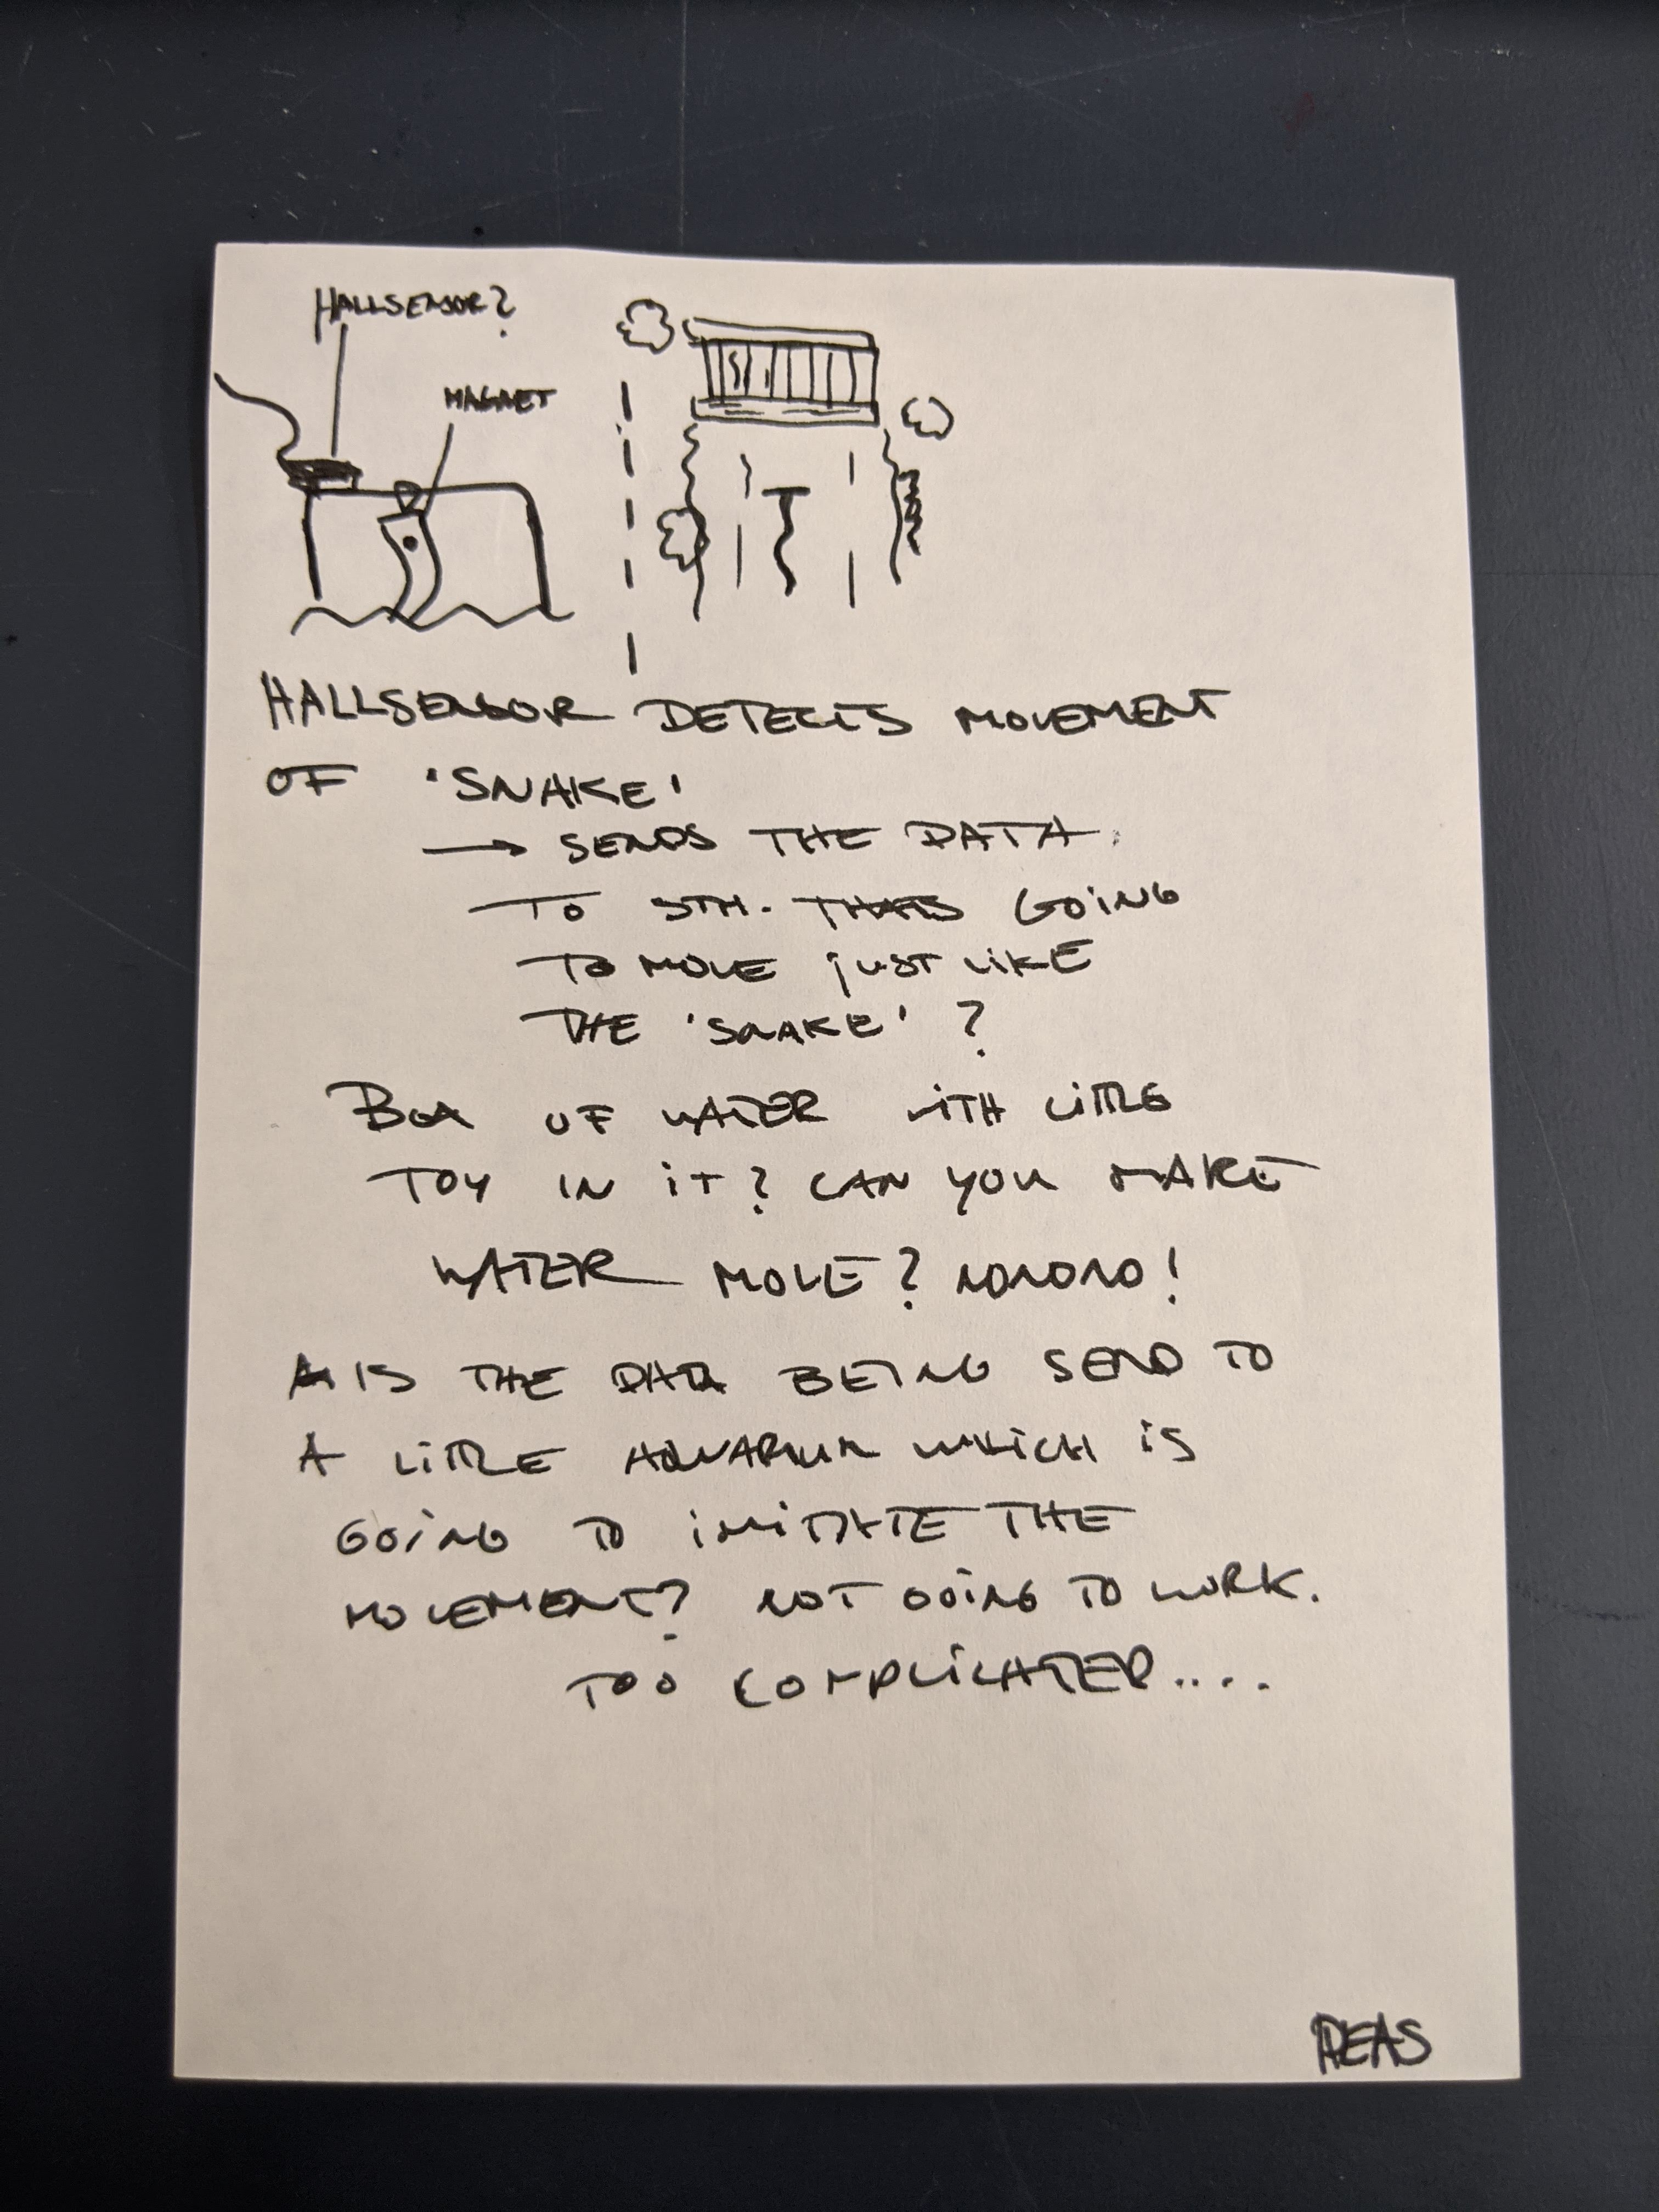 HALLSENSOR?
MAGNET
HALLSENSOR DETECTS MOVEMENT
OF 'SNAKE'
→ SENDS THE DATA
TO STH. THATS GOING
TO MOVE JUST LIKE
THE 'SNAKE' ?
BOX OF WATER WITH LITTLE
TOY IN IT? CAN YOU MAKE
WATER MOVE? NONONO!
IS THE DATA BEING SEND TO
A LITTLE AQUARIUM WHICH IS
GOING TO IMITATE THE
MOVEMENT? NOT GOING TO WORK.
TOO COMPLICATED....
IDEAS